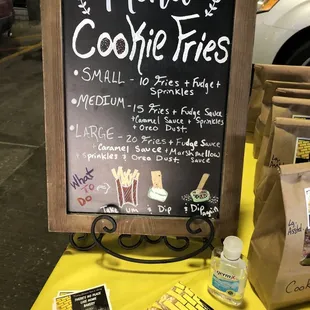 Menu
Cookie Fries
• SMALL - 10 Fries + Fudge +
Sprinkles
• MEDIUM - 15 Fries + Fudge Sauce
+ Caramel Sauce + Sprinkles
+ Oreo Dust.
• LARGE - 20 Fries + Fudge Sauce
+ Caramel Sauce + Marshmellow
+ Sprinkles & Oreo Dust. sauce
What
TO
DO
& Dip
& Dip
Again